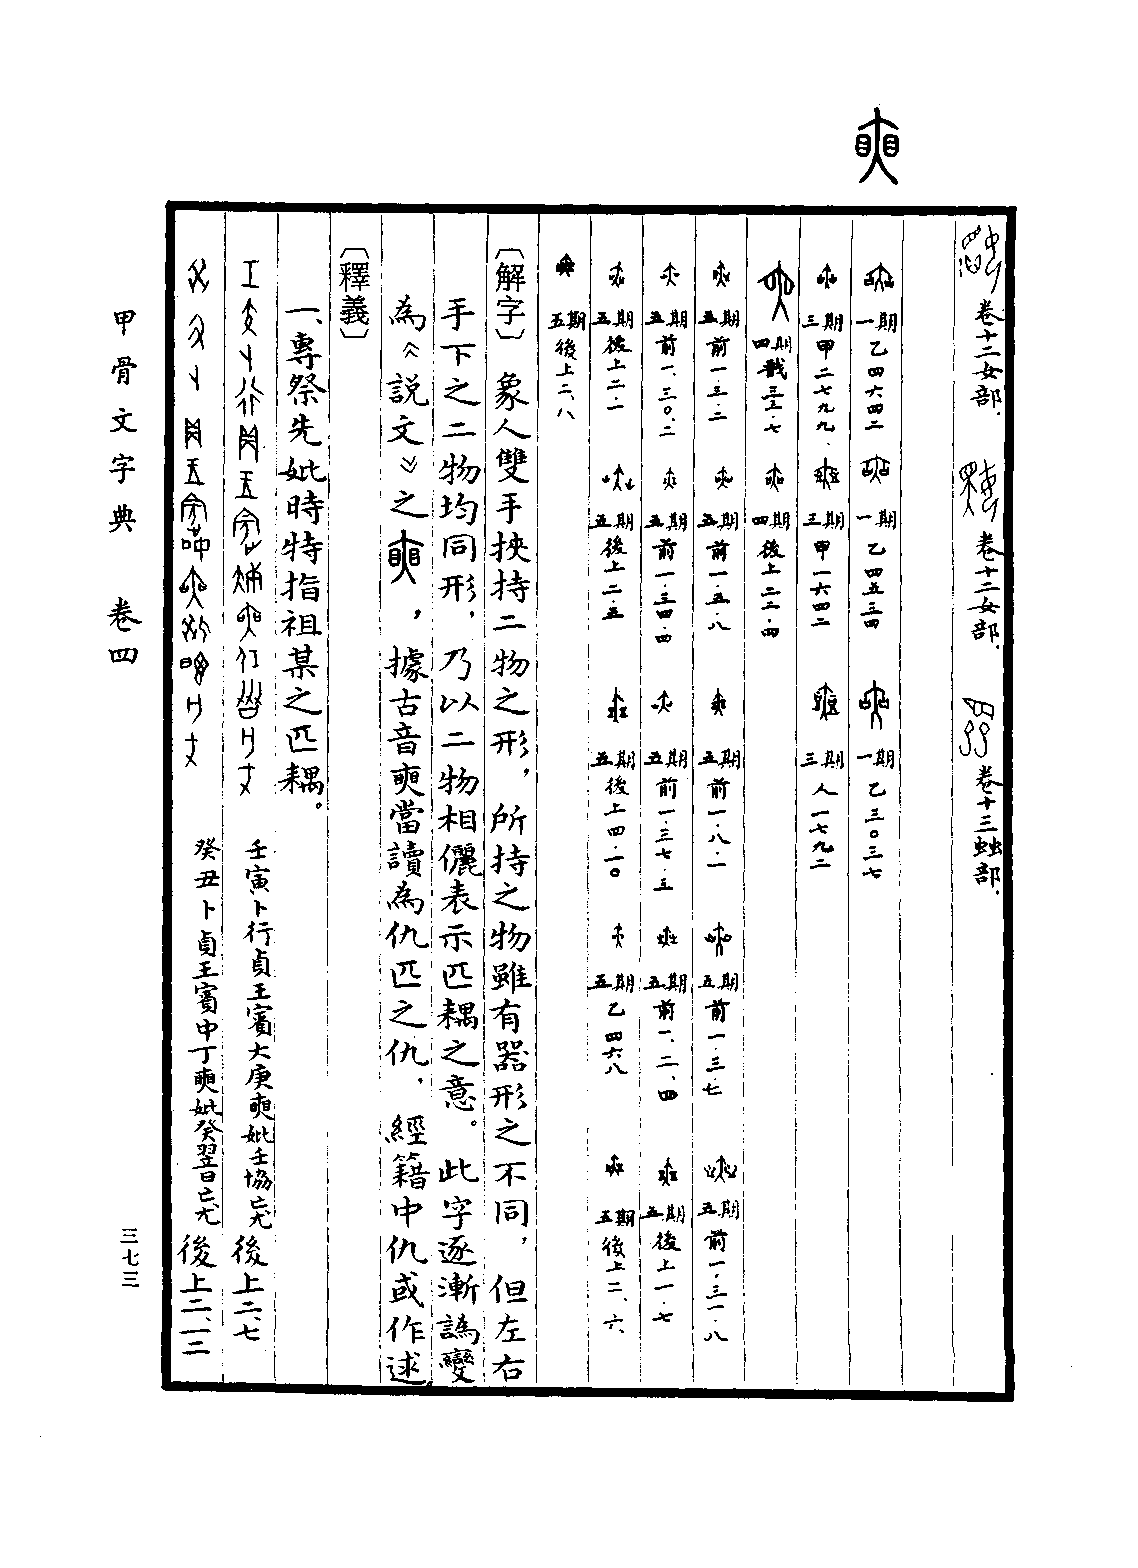 奭
卷十二女部.
卷十二女部.
卷十三䖵部.
一期 乙四六四二
一期 乙四五三四
一期 乙三〇三七
三期 甲二七九九.
三期 甲一六四二
三期 人一七九二
四期 戩三三.七
四期 後上二二.四
五期 前一.三.二
五期 前一.五.八
五期 前一.八.一
五期 前一.三.七
五期 前一.三一.八
五期 前一.三〇.二
五期 前一.三四.四
五期 前一.三七.五
五期 前一.二.四
五期 後上一.七
五期 後上二.一
五期 後上二.五
五期 後上四.一〇
五期 乙四六八
五期 後上二.六.
五期 後上二.八
〔解字〕 象人雙手挾持二物之形，所持之物雖有器形之不同，但左右
手下之二物均同形，乃以二物相儷表示匹耦之意。此字逐漸譌變
為《說文》之奭，據古音奭當讀為仇匹之仇，經籍中仇或作逑
〔釋義〕
一、專祭先妣時特指祖某之匹耦。
壬寅卜行貞王賓大庚奭妣壬協亡尤 後上二.七
癸丑卜貞王賓中丁奭妣癸翌日亡尤 後上二.一二
甲骨文字典 卷四
三七三